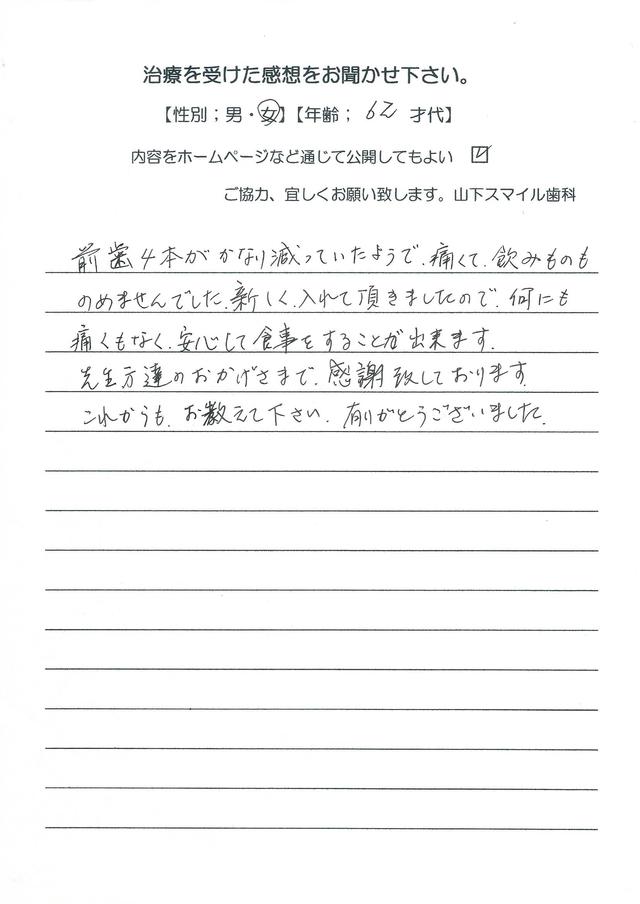 治療を受けた感想をお聞かせ下さい。
【性別；男・女】【年齢； 62 才代】
内容をホームページなど通じて公開してもよい ☑
ご協力、宜しくお願い致します。山下スマイル歯科
前歯4本がかなり減っていたようで、痛くて、飲みものも
のめませんでした。新しく、入れて頂きましたので、何にも
痛くもなく、安心して食事をすることが出来ます。
先生方達のおかげさまで、感謝致しております。
これからも、お教えて下さい。有りがとうございました。